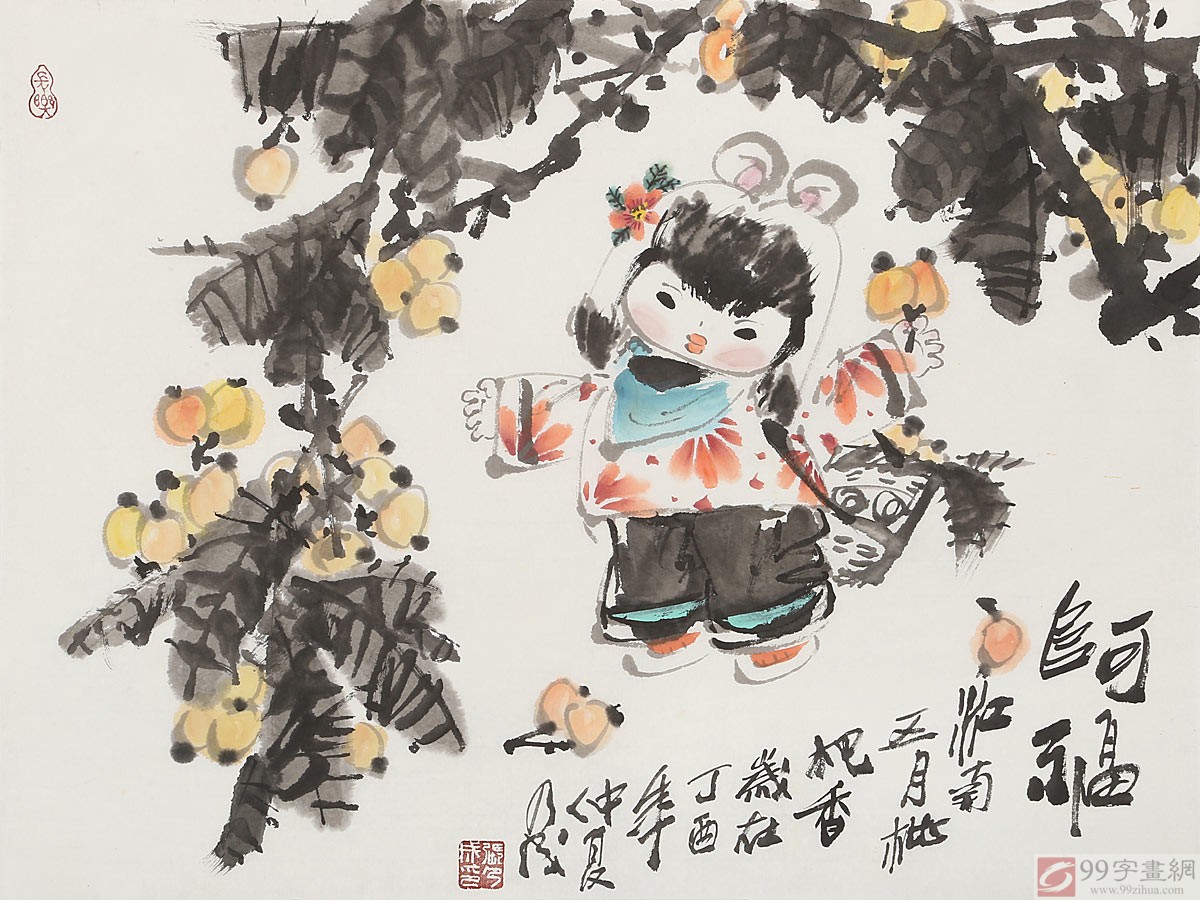 阿福
江南
五月枇
杷香
歲在
丁酉
年
仲夏
乃成
張乃成印
99字畫網
www.99zihua.com